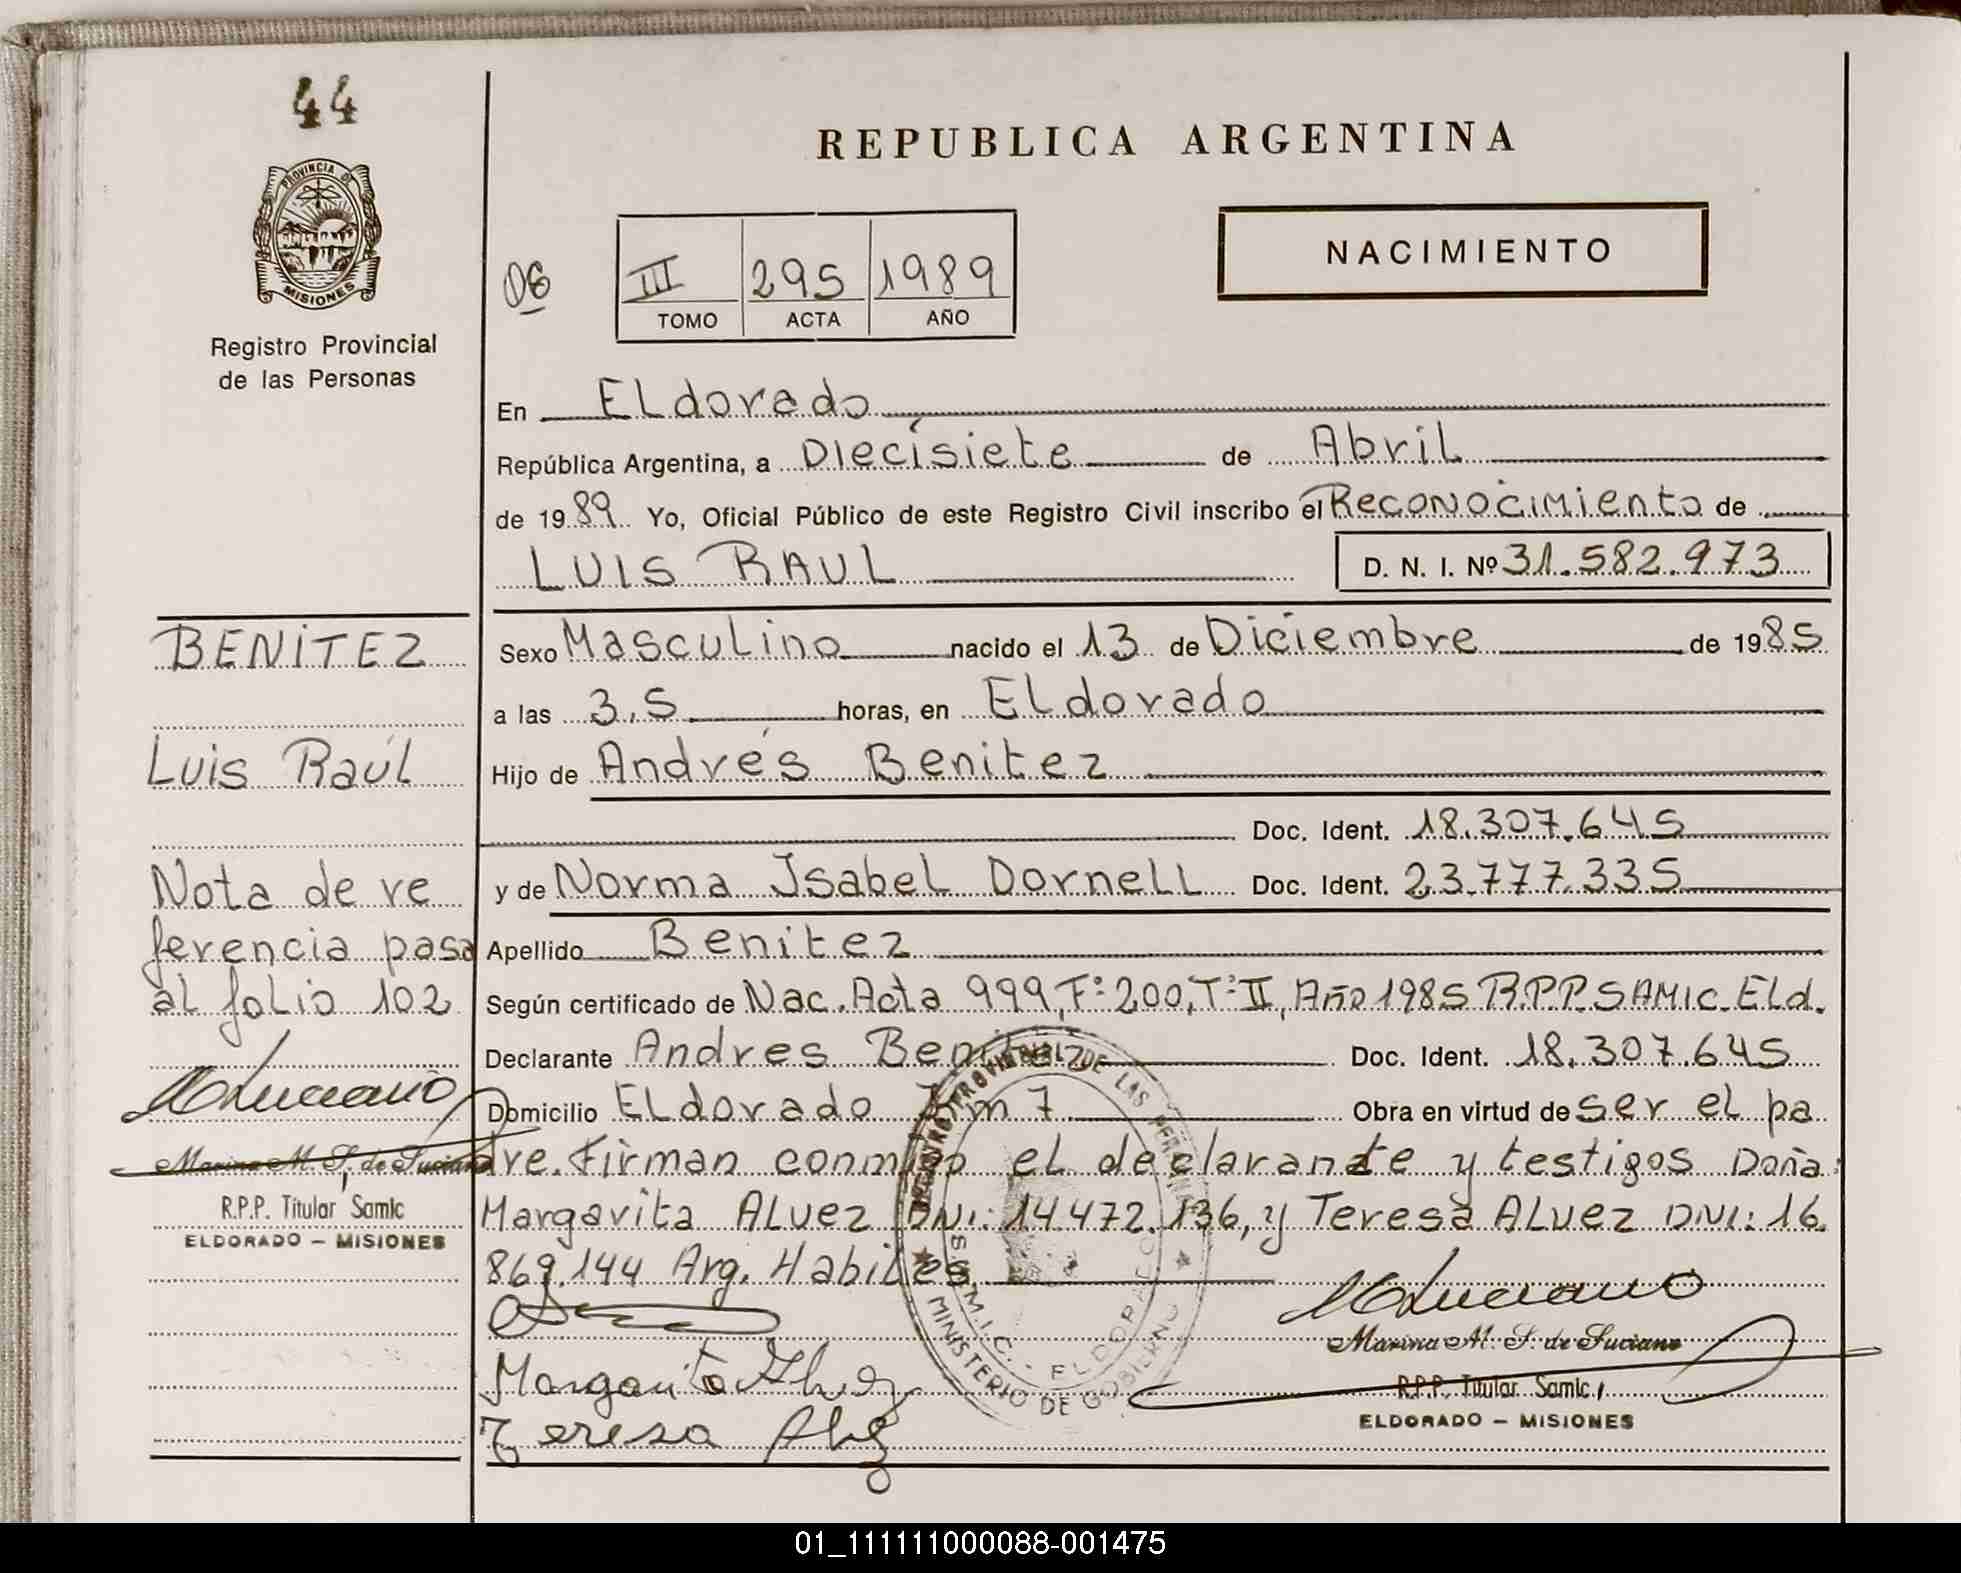 44
REPUBLICA ARGENTINA
PROVINCIA DE
MISIONES
Registro Provincial
de las Personas
06
III 295 1989
TOMO ACTA AÑO
NACIMIENTO
En ELdorado
República Argentina, a Diecisiete de Abril
de 1989 Yo, Oficial Público de este Registro Civil inscribo el Reconocimiento de
LUIS RAUL D. N. I. Nº 31.582.973
BENITEZ
Luis Raúl
Nota de re
ferencia pasa
al folio 102
Marina M. S. de Luciano
R.P.P. Titular Samic
ELDORADO – MISIONES
Sexo Masculino nacido el 13 de Diciembre de 1985
a las 3,5 horas, en ELdorado
Hijo de Andrés Benitez
Doc. Ident. 18.307.645
y de Norma Isabel Dornell Doc. Ident. 23.777.335
Apellido Benitez
Según certificado de Nac. Acta 999, F:200, T:II, Año 1985 R.P.P. SAMIC. Eld.
Declarante Andres Benitez Doc. Ident. 18.307.645
Domicilio ELdorado Km 7 Obra en virtud de ser el pa
dre. Firman conmigo el declarante y testigos Doña:
Margarita ALvez DNI: 14472.136, y Teresa ALvez DNI: 16.
869.144 Arg. Habiles
Margarita Alvez
Teresa Alvez
REGISTRO PROVINCIAL DE LAS PERSONAS
S.A.M.I.C. - ELDORADO
MINISTERIO DE GOBIERNO
Marina M. S. de Luciano
R.P.P. Titular Samic
ELDORADO – MISIONES
01_111111000088-001475